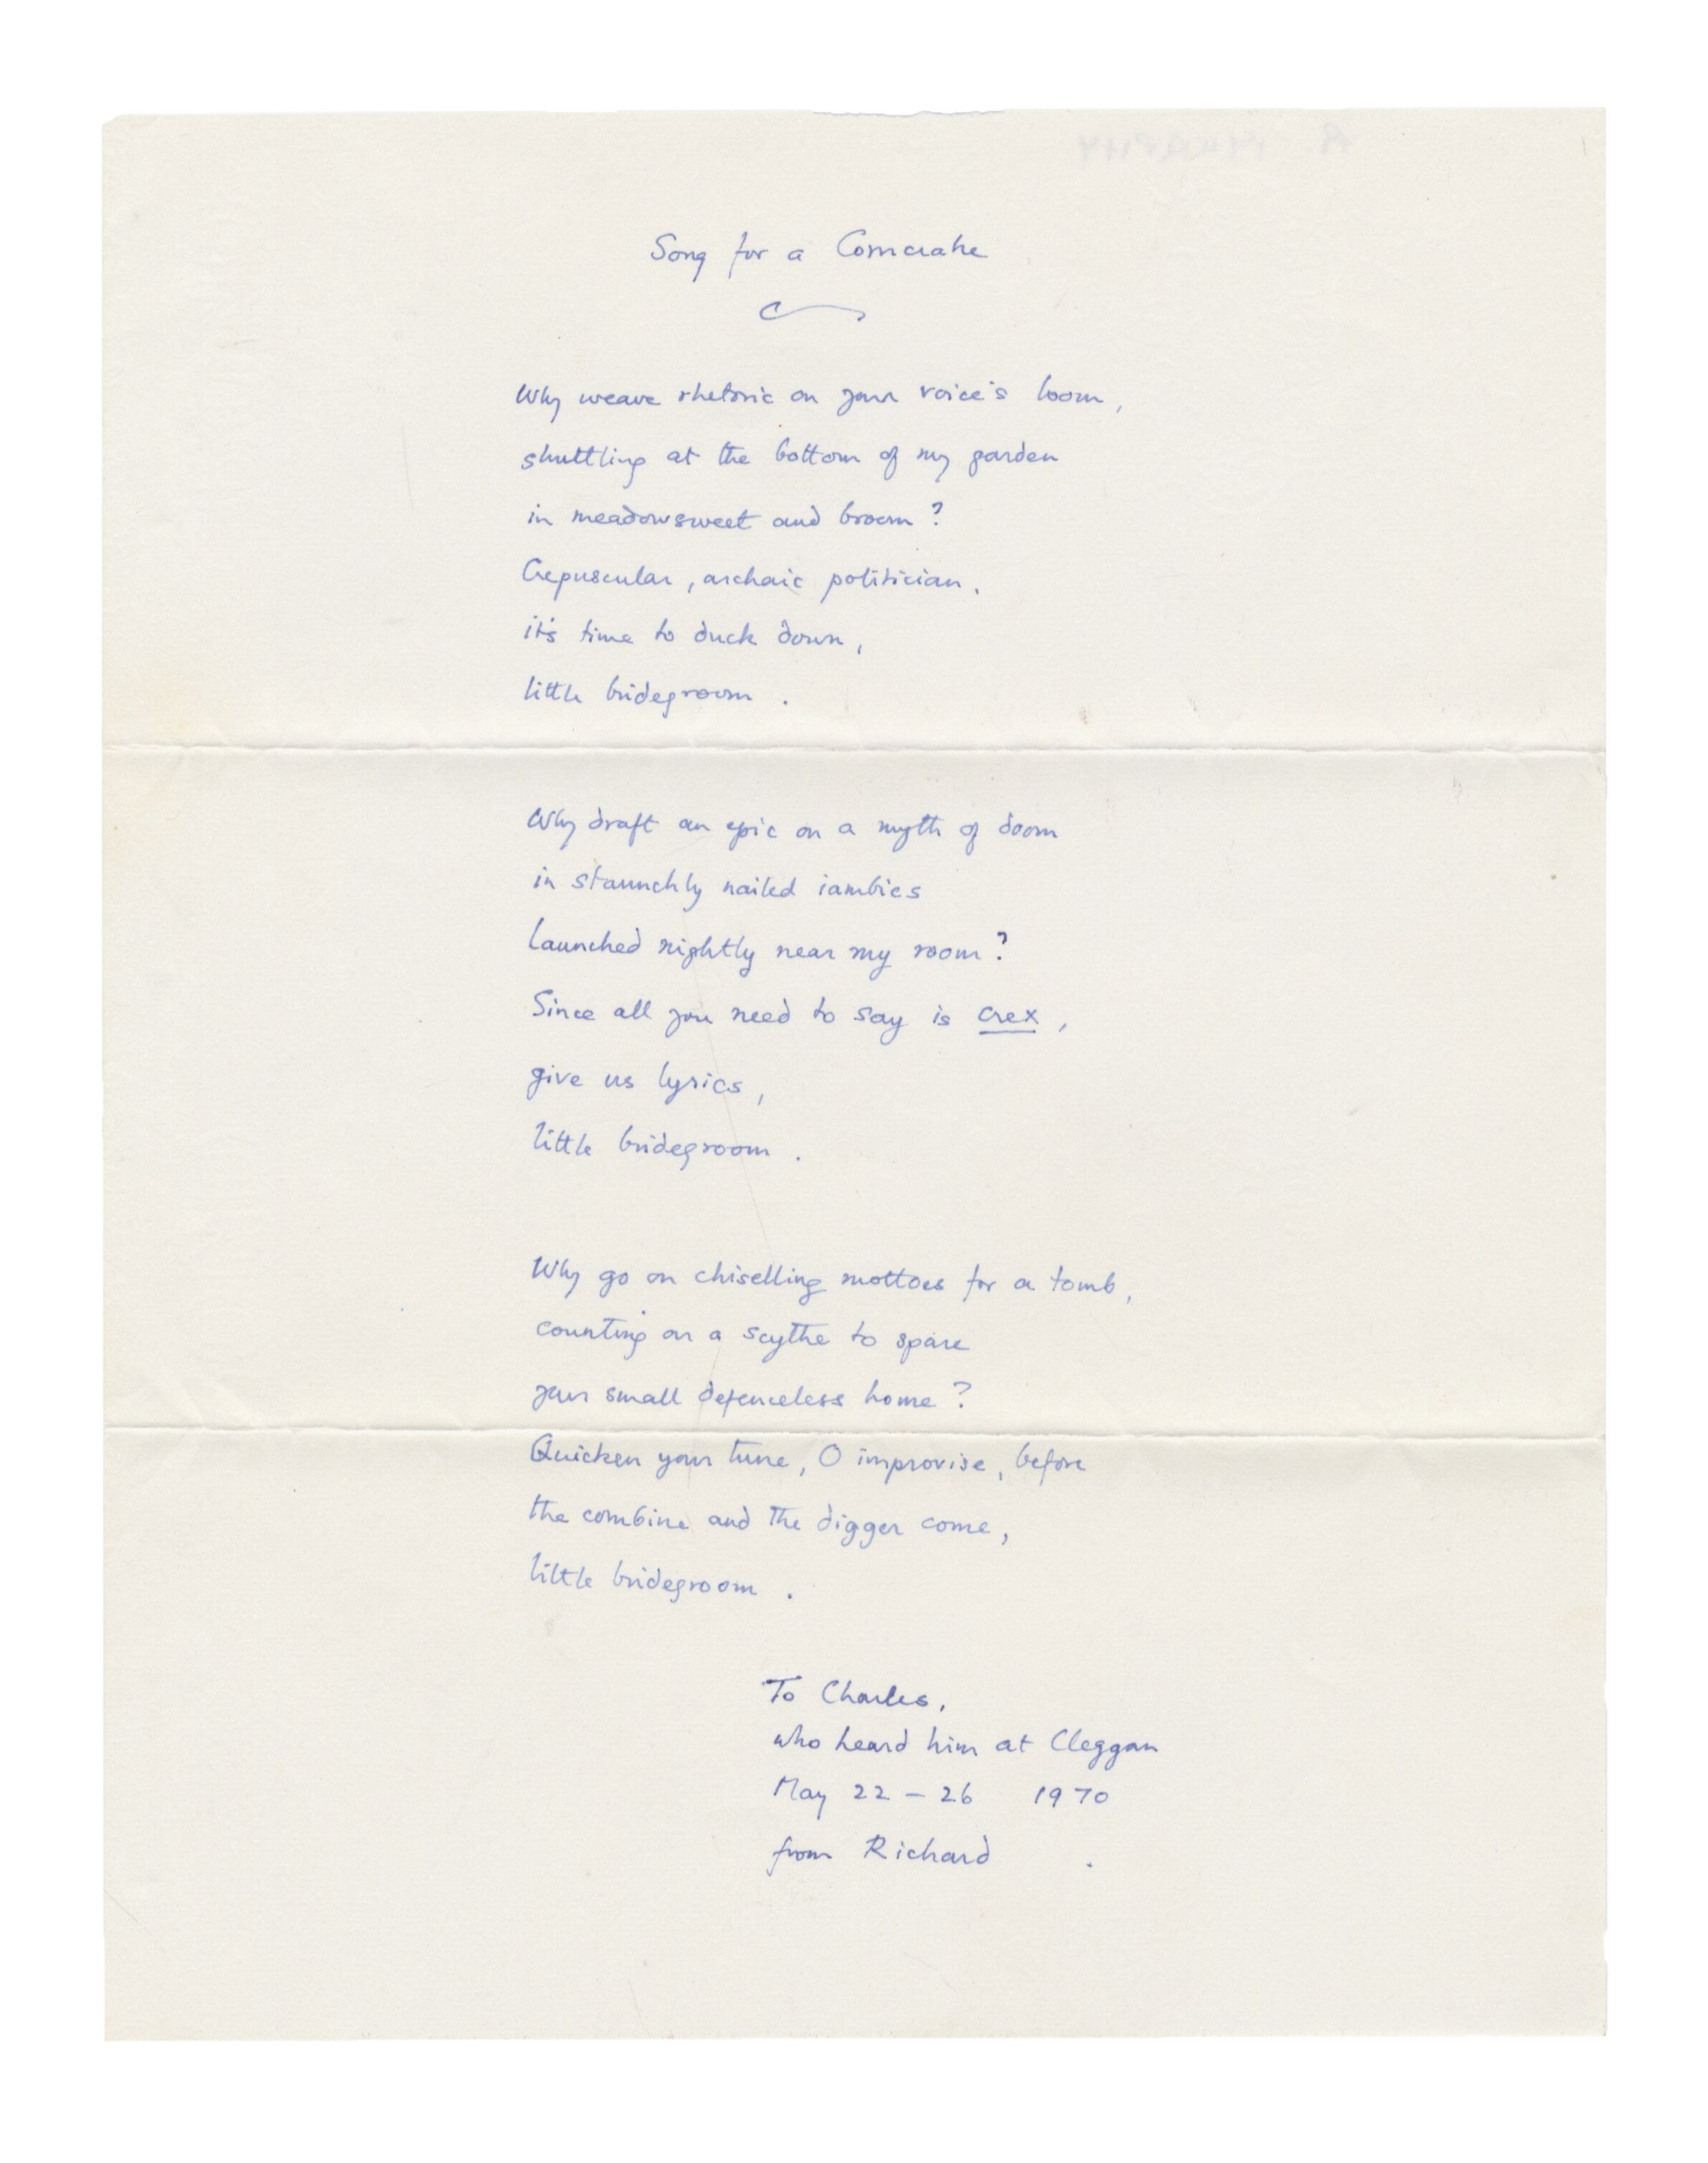 R. MURPHY
Song for a Corncrake
Why weave rhetoric on your voice's loom,
shuttling at the bottom of my garden
in meadowsweet and broom?
Crepuscular, archaic politician,
it's time to duck down,
little bridegroom.
Why draft an epic on a myth of doom
in staunchly nailed iambics
Launched nightly near my room?
Since all you need to say is crex,
give us lyrics,
little bridegroom.
Why go on chiselling mottoes for a tomb,
counting on a scythe to spare
your small defenceless home?
Quicken your tune, O improvise, before
the combine and the digger come,
little bridegroom.
To Charles,
who heard him at Cleggan
May 22 – 26 1970
from Richard.